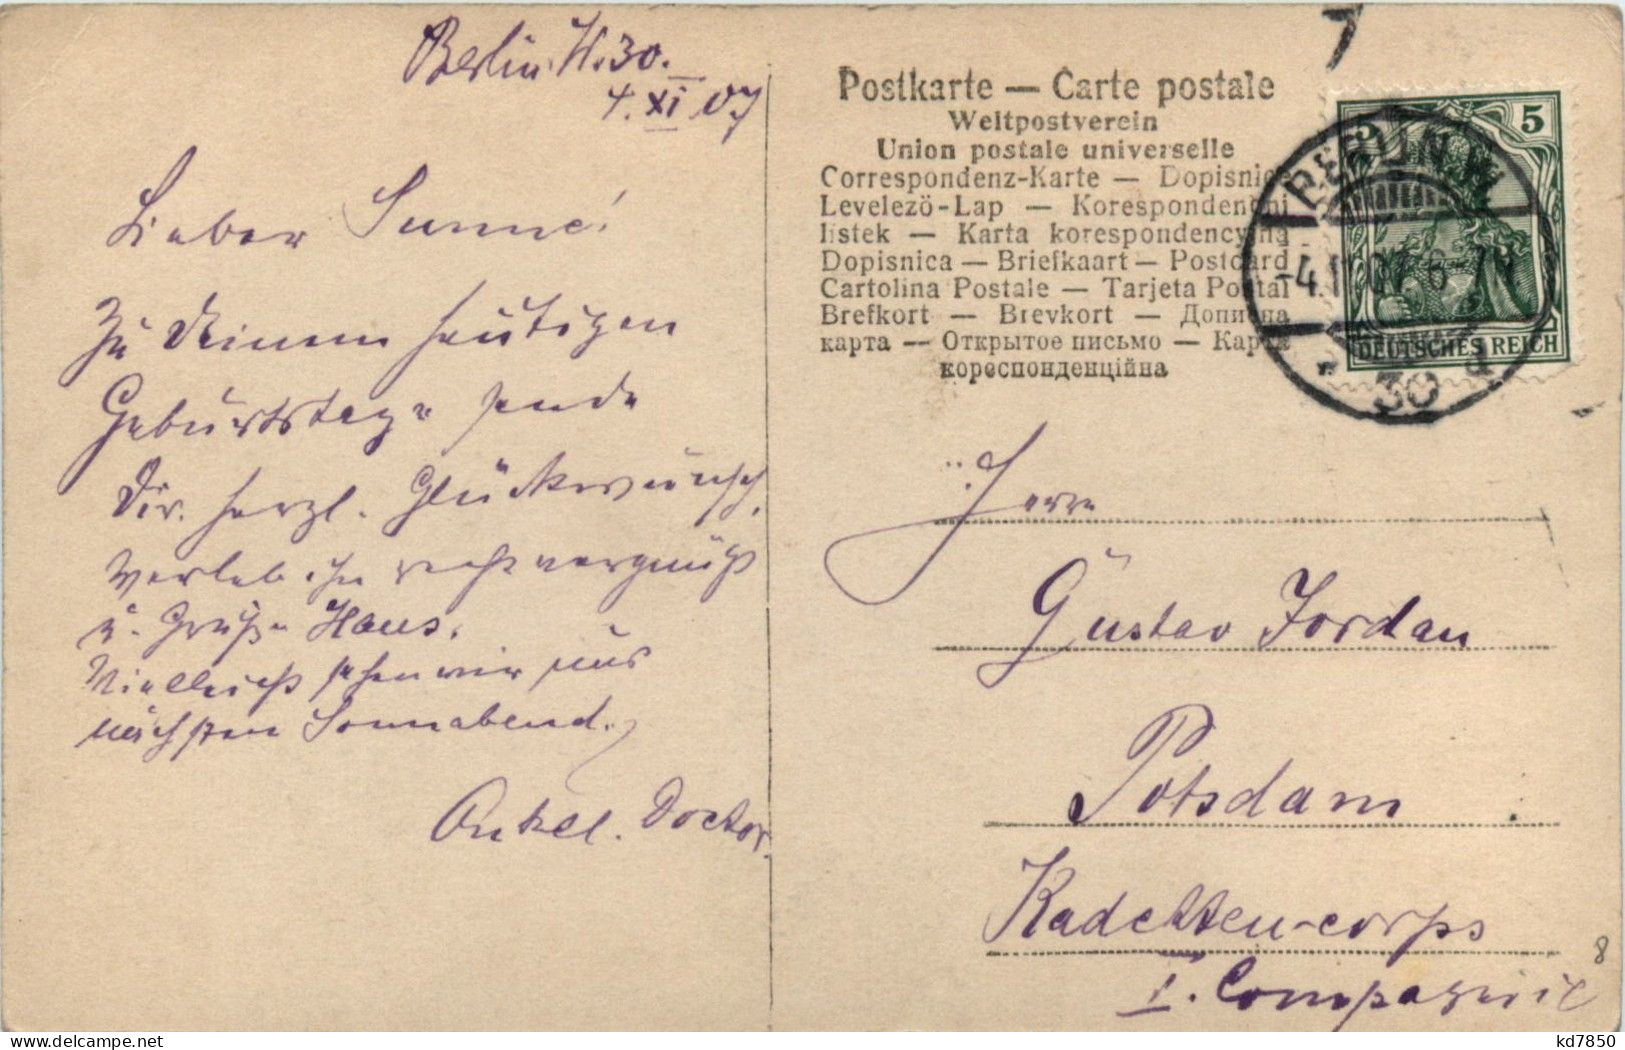 Berlin W. 30.
4. XI 07
Lieber
Zu Deinem heutigen
Geburtstage sende
Dir herzl. Glückwunsch,
verlebe ihn recht vergnügt
u. Grüße Haus.
Vielleicht sehen wir uns
nächsten Sonnabend.
Onkel. Doctor.
Postkarte — Carte postale
Weltpostverein
Union postale universelle
Correspondenz-Karte — Dopisnice
Levelezö-Lap — Korespondenční
listek — Karta korespondencyjna
Dopisnica — Briefkaart — Postcard
Cartolina Postale — Tarjeta Postal
Brefkort — Brevkort — Дописна
карта — Открытое письмо — Карта
кореспонденційна
7
5
DEUTSCHES REICH
BERLIN W
-4.11.07. 6-7N
* 30
Herrn
Gustav Jordan
Potsdam.
Kadetten-corps
I. Compagnie
8
kd7850